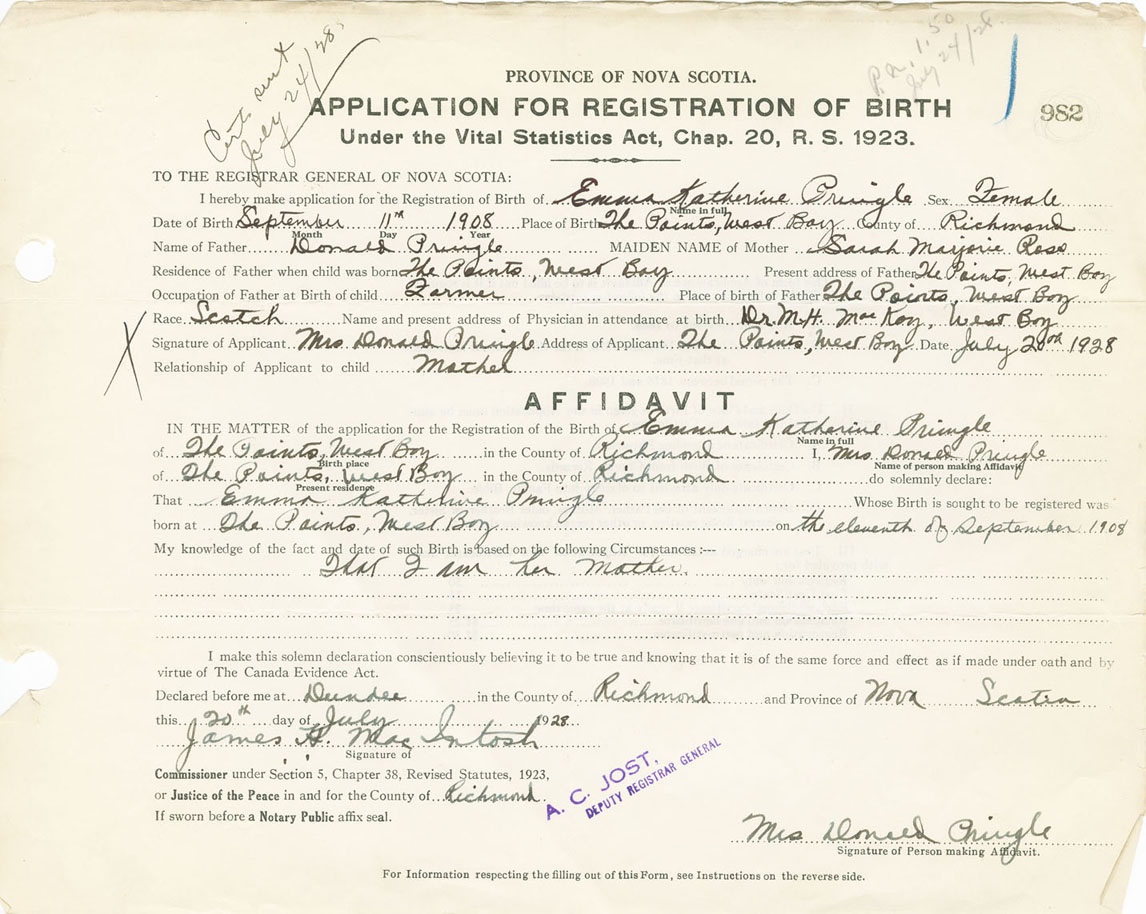 Cert. sent
July 24/28.
P.N. 1.50
July 24/28
PROVINCE OF NOVA SCOTIA.
APPLICATION FOR REGISTRATION OF BIRTH
982
Under the Vital Statistics Act, Chap. 20, R. S. 1923.
TO THE REGISTRAR GENERAL OF NOVA SCOTIA:
I hereby make application for the Registration of Birth of Emma Katherine Pringle Sex Female
Name in full
Date of Birth September 11th 1908 Place of Birth The Points, West Bay County of Richmond
Month Day Year
Name of Father Donald Pringle MAIDEN NAME of Mother Sarah Marjorie Ross
Residence of Father when child was born The Points, West Bay Present address of Father The Points, West Bay
Occupation of Father at Birth of child Farmer Place of birth of Father The Points, West Bay
Race Scotch Name and present address of Physician in attendance at birth Dr. M.H. MacKay, West Bay
X Signature of Applicant Mrs Donald Pringle Address of Applicant The Points, West Bay Date July 20th 1928
Relationship of Applicant to child Mother
AFFIDAVIT
IN THE MATTER of the application for the Registration of the Birth of Emma Katherine Pringle
Name in full
of The Points, West Bay in the County of Richmond I, Mrs Donald Pringle
Birth place Name of person making Affidavit
of The Points, West Bay in the County of Richmond do solemnly declare:
Present residence
That Emma Katherine Pringle Whose Birth is sought to be registered was
born at The Points, West Bay on the eleventh of September 1908
My knowledge of the fact and date of such Birth is based on the following Circumstances :---
That I am her Mother.
I make this solemn declaration conscientiously believing it to be true and knowing that it is of the same force and effect as if made under oath and by
virtue of The Canada Evidence Act.
Declared before me at Dundee in the County of Richmond and Province of Nova Scotia
this 20th day of July 1928
James H. MacIntosh
Signature of
Commissioner under Section 5, Chapter 38, Revised Statutes, 1923,
or Justice of the Peace in and for the County of Richmond
If sworn before a Notary Public affix seal.
A. C. JOST,
DEPUTY REGISTRAR GENERAL
Mrs Donald Pringle
Signature of Person making Affidavit.
For Information respecting the filling out of this Form, see Instructions on the reverse side.